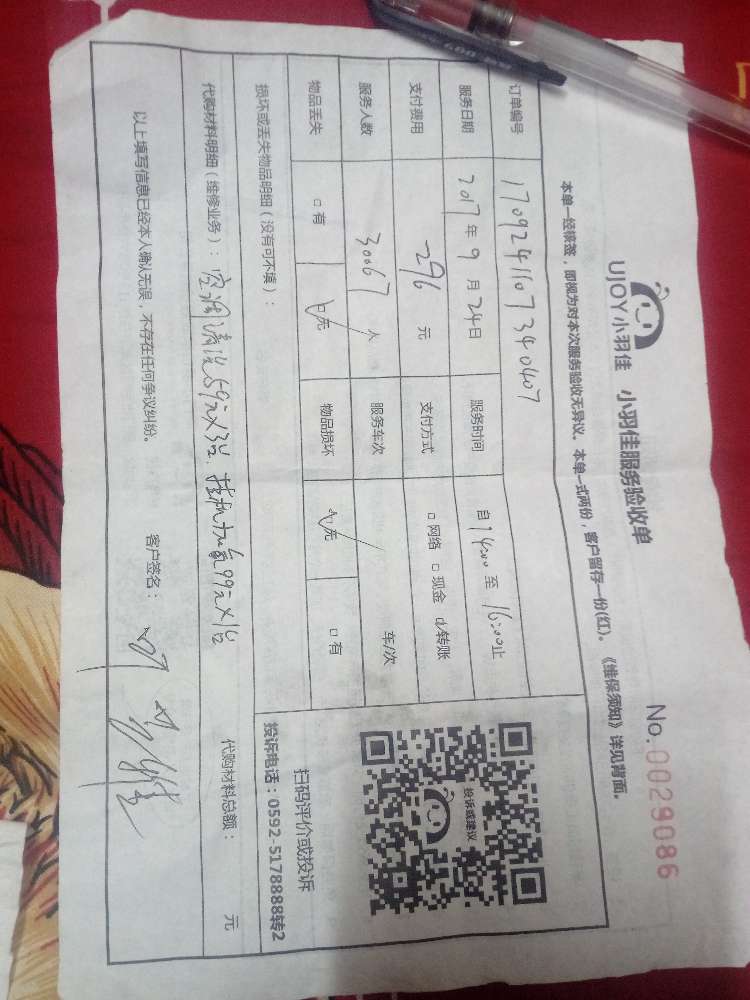 UJOY小羽佳 小羽佳服务验收单
No.0029086
本单一经核签,即视为对本次服务验收无异议。本单一式两份,客户留存一份(红)。《维保须知》详见背面。
订单编号 1709241107340407
服务日期 2017年9月24日 服务时间 自14:00至16:00止
支付费用 296元 支付方式 □网络 □现金 ☑转账
服务人数 30067人 服务车次 车/次
物品丢失 □有 ☑无 物品损坏 ☑无 □有
损坏或丢失物品明细(没有可不填):
扫码评价或投诉
投诉电话:0592-5178888转2
投诉或建议
代购材料明细(维修业务):空调清洗59元×3台. 挂机加氟99元×1台 代购材料总额: 元
以上填写信息已经本人确认无误,不存在任何争议纠纷。 客户签名: